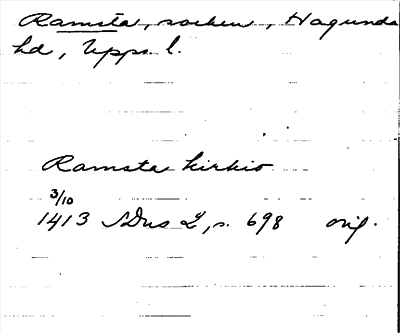 Ramsta, socken, Hagunda
hd, Upps. l.
Ramsta kirkio
3/10
1413 SDns 2, s. 698 orig.